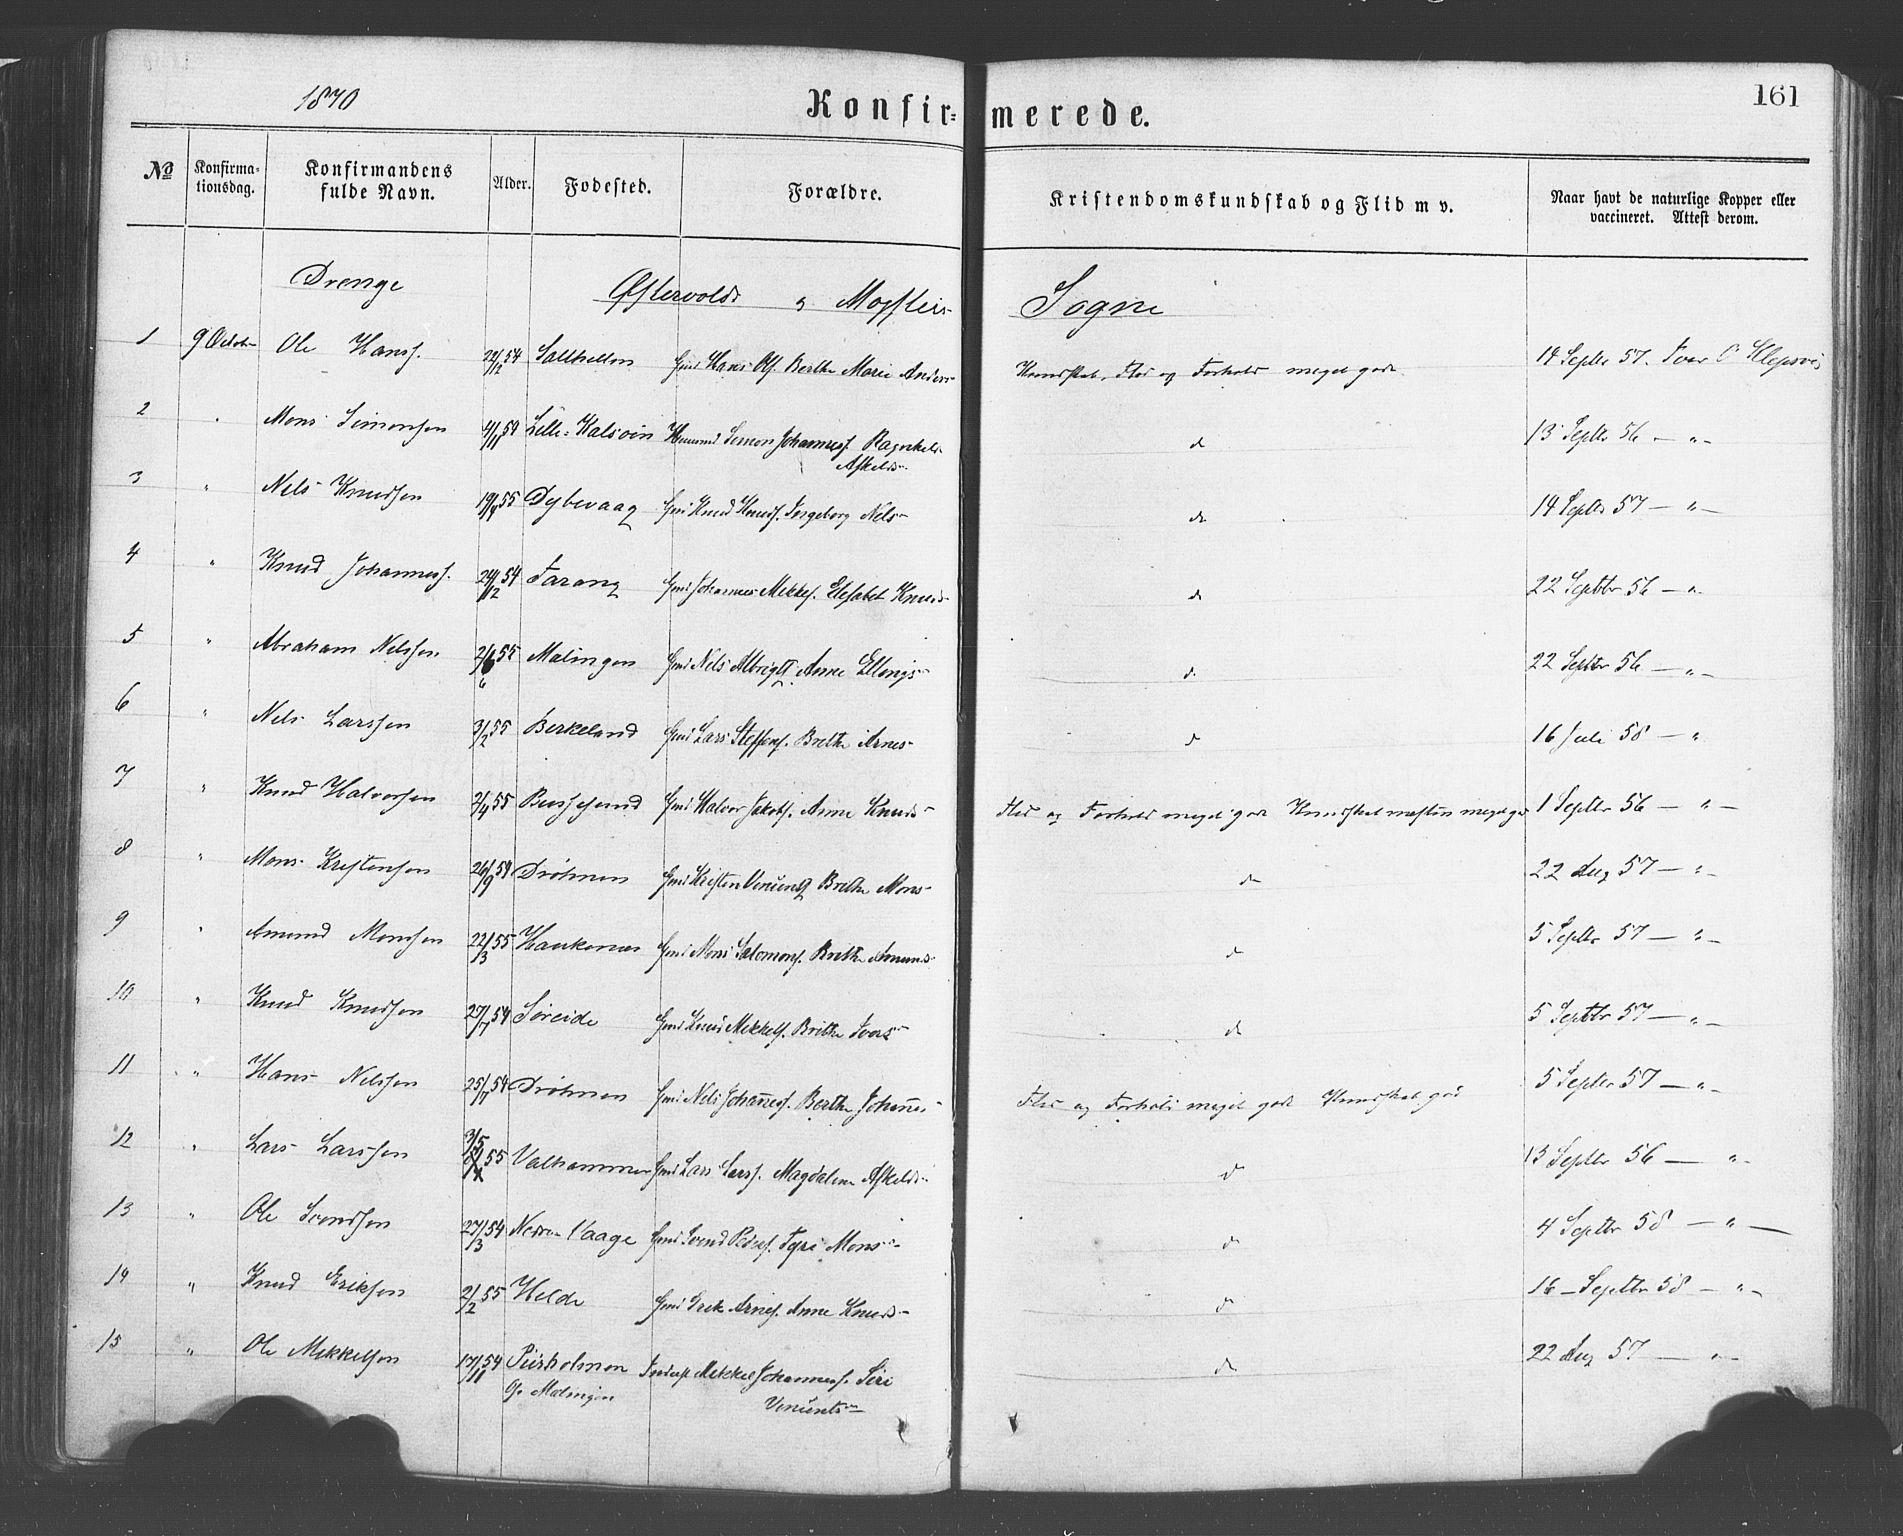 1870
Konfirmerede.
161
No
Konfirmationsdag.
Konfirmandens fulde Navn.
Alder.
Fodested.
Forældre.
Kristendomskundskab og Flid m v.
Naar havt de naturlige Kopper eller vaccineret. Attest derom.
Drenge Østervolds og Møgsters Sogne
1 9 Octob Ole Hanss. 22/12 54 Salthellen Gmd Hans Ols. Berthe Marie Anders- Kundskab, Flid og Forhold meget godt. 14 Septbr 57. Iver O Klepsvig
2 " Mons Simonsen 4/11 54 Lille-Kalsøen Huusmd Simon Johanness. Ragnhild Askelds- d 13 Septbr 56 — " —
3 " Nels Knudsen 19/4 55 Dybevaag Gmd Knud Knuds. Ingeborg Nels- do 14 Septbr 57 — " —
4 " Knud Johanness. 24/12 54 Tarang Gmd Johannes Mikkels. Elisabet Knuds- d 22 Septbr 56 — " —
5 " Abraham Nelssen 2/6 55 Malingen Gmd Nels Albrigts. Anne Ellings- d 22 Septbr 56 — " —
6 " Nels Larssen 3/2 55 Berkeland Gmd Lars Steffens. Brethe Arnes- d 16 Juli 58 — "
7 " Knud Halvorsen 2/4 55 Bussesund Gmd Halvor Jakobs. Anne Knuds- Flid og Forhold meget godt Kundskab næsten meget g 1 Septbr 56 — " —
8 " Mons Kristensen 26/9 54 Drøhnen Gmd Kristen Vincents Brethe Mons- do 22 Aug 57 — " —
9 " Amund Monssen 22/3 55 Haukenæs Gmd Mons Salomons. Brethe Amunds- d 5 Septbr 57 — " —
10 " Knud Knudsen 27/7 54 Søreide Gmd Knud Mikkels. Brithe Ivers- d 5 Septbr 57 — " —
11 " Hans Nelssen 25/7 54 Drøhnen Gmd Nels Johaness. Berthe Johanes- Flid og Forhold meget godt Kundskab god 5 Septbr 57 — " —
12 " Lars Larssen 3/5 55 Valhammer Gmd Lars Larss. Magdalene Askelds- d 13 Septbr 56 — " —
13 " Ole Svendsen 27/3 54 Nedre Vaage Gmd Svend Peders. Syri Mons- d 4 Septbr 58 — " —
14 " Knud Eriksen 2/2 55 Helde Gmd Erik Arnes. Anne Knuds- d 16 Septbr 58 — " —
15 " Ole Mikkelsen 17/11 54 Piirholmen Inderst Mikkel Johanness. Siri d 22 Aug 57 — " —
G. Malingen Vincents-